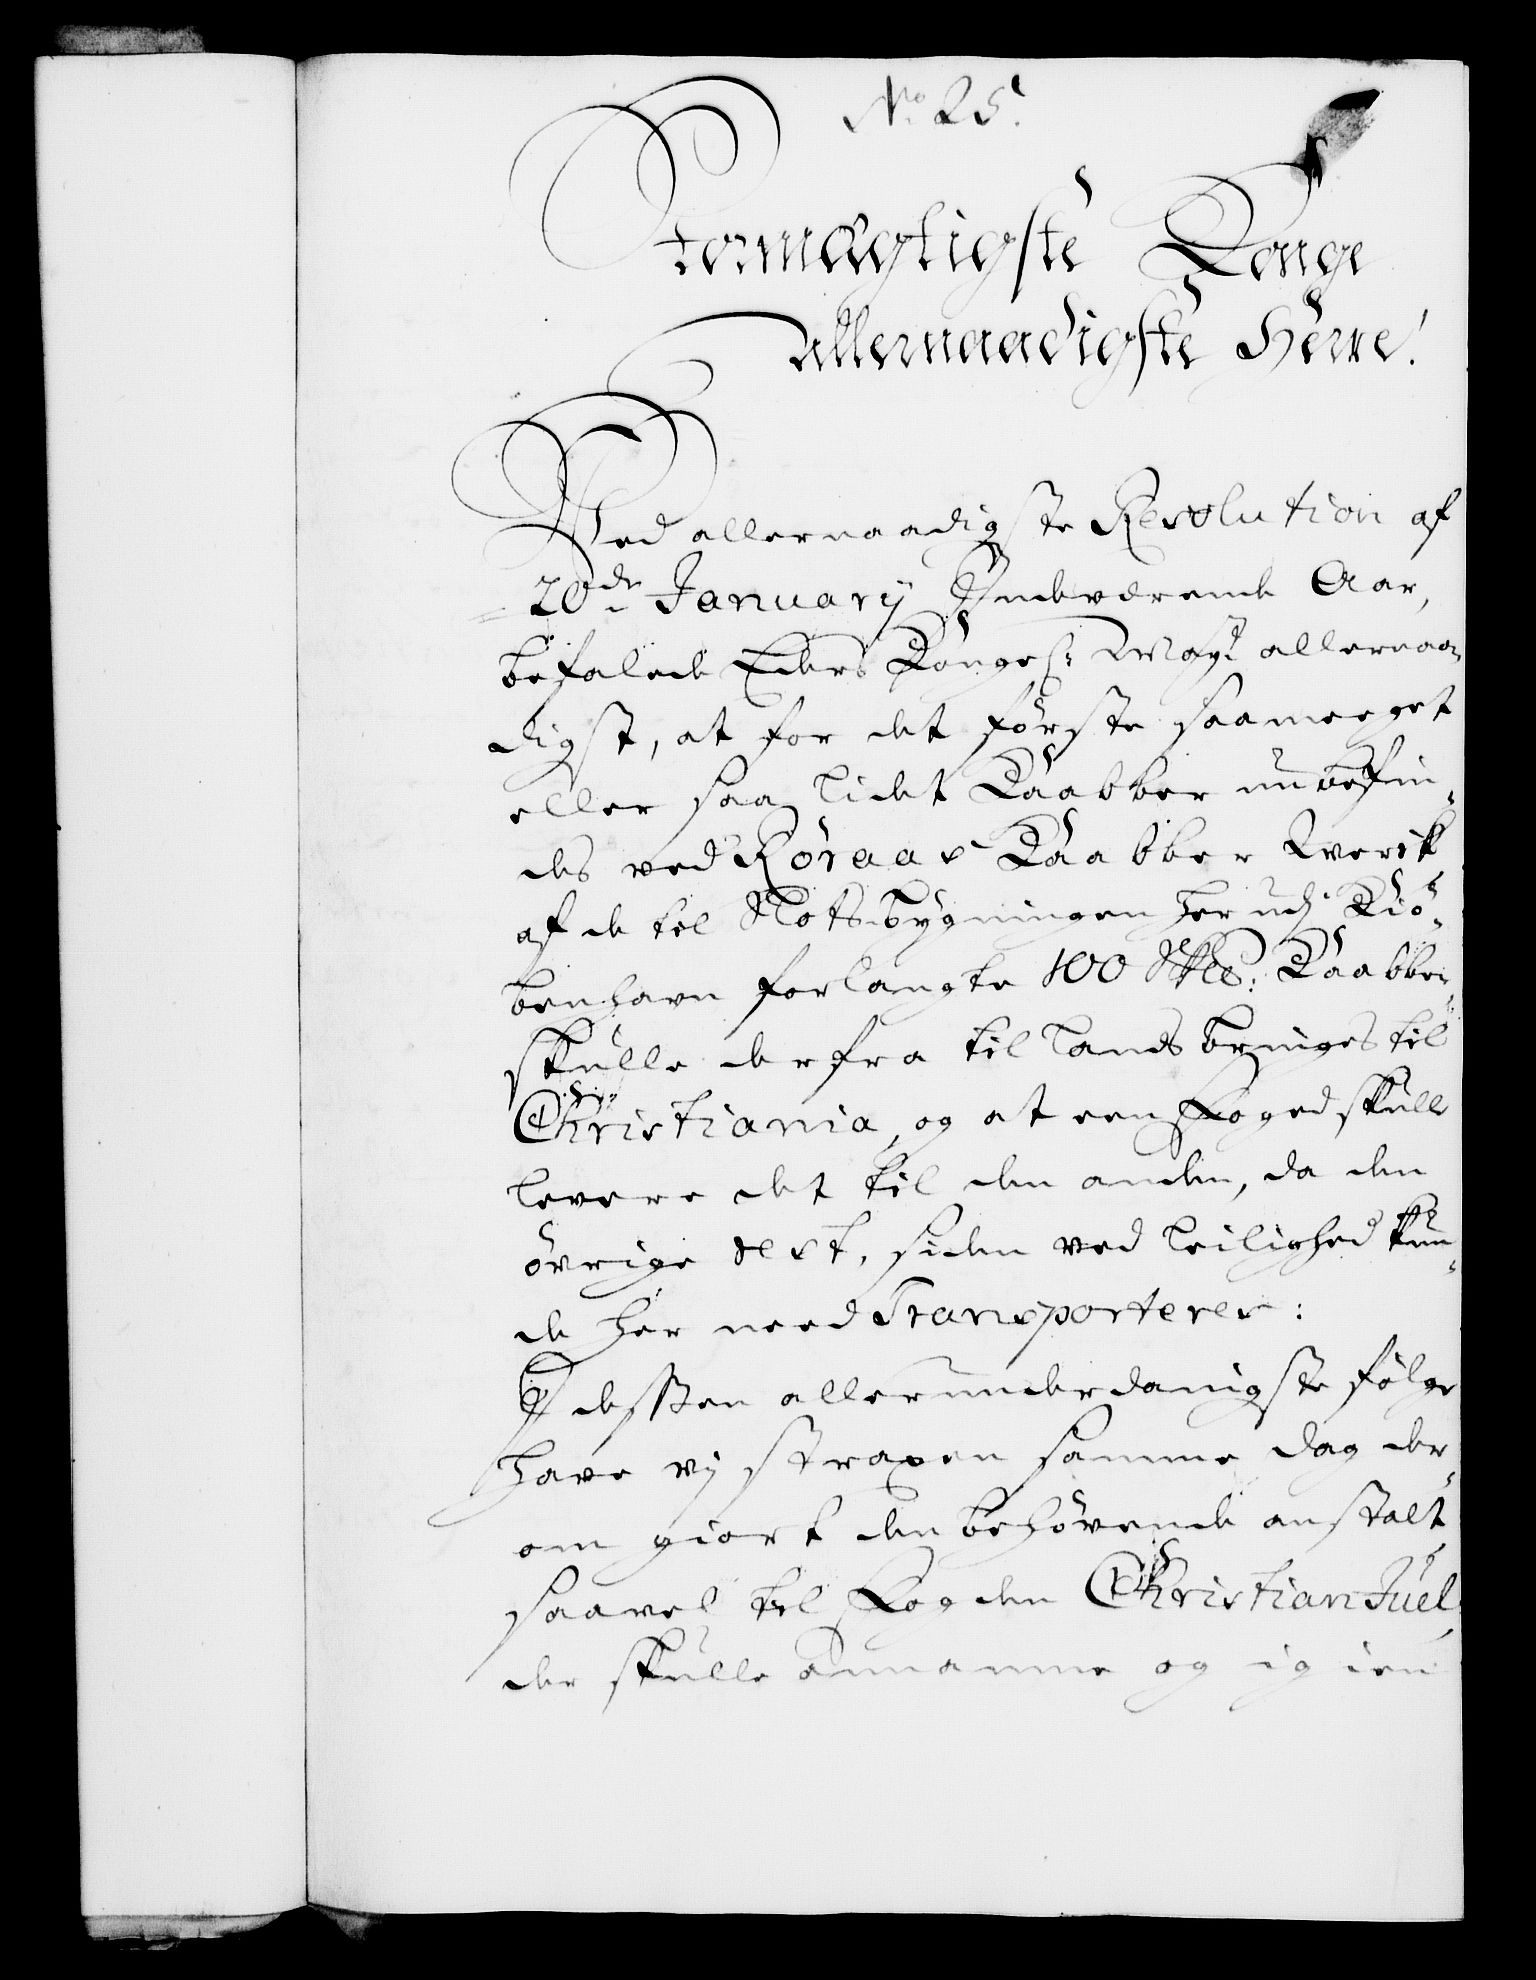 No. 25.
Stormægtigste Konge
Allernaadigste Herre!
Ved allernaadigste Resolution af
20de January Indeværende Aar,
befalede Eders Kongel: May:t allernaa-
digst, at for det förste saameeget
eller saa lidet Kaabber nu befin-
des ved Röraas Kaabber Werck
af de til Slots-bygningen her udj Kiö-
benhavn forlangte 100 Sk℔: Kaabber
skulle derfra til lands bringes til
Christiania, og at een Foged skulle
levere det til den anden, da den
övrige rest, siden ved leilighed kun-
de her need Transporteres:
I dessen allerunderdanigste fölge
have vj straxen samme dag der-
om giort den behövende anstalt,
saavel til Fogden Christian Juel,
der skulle annamme og igien